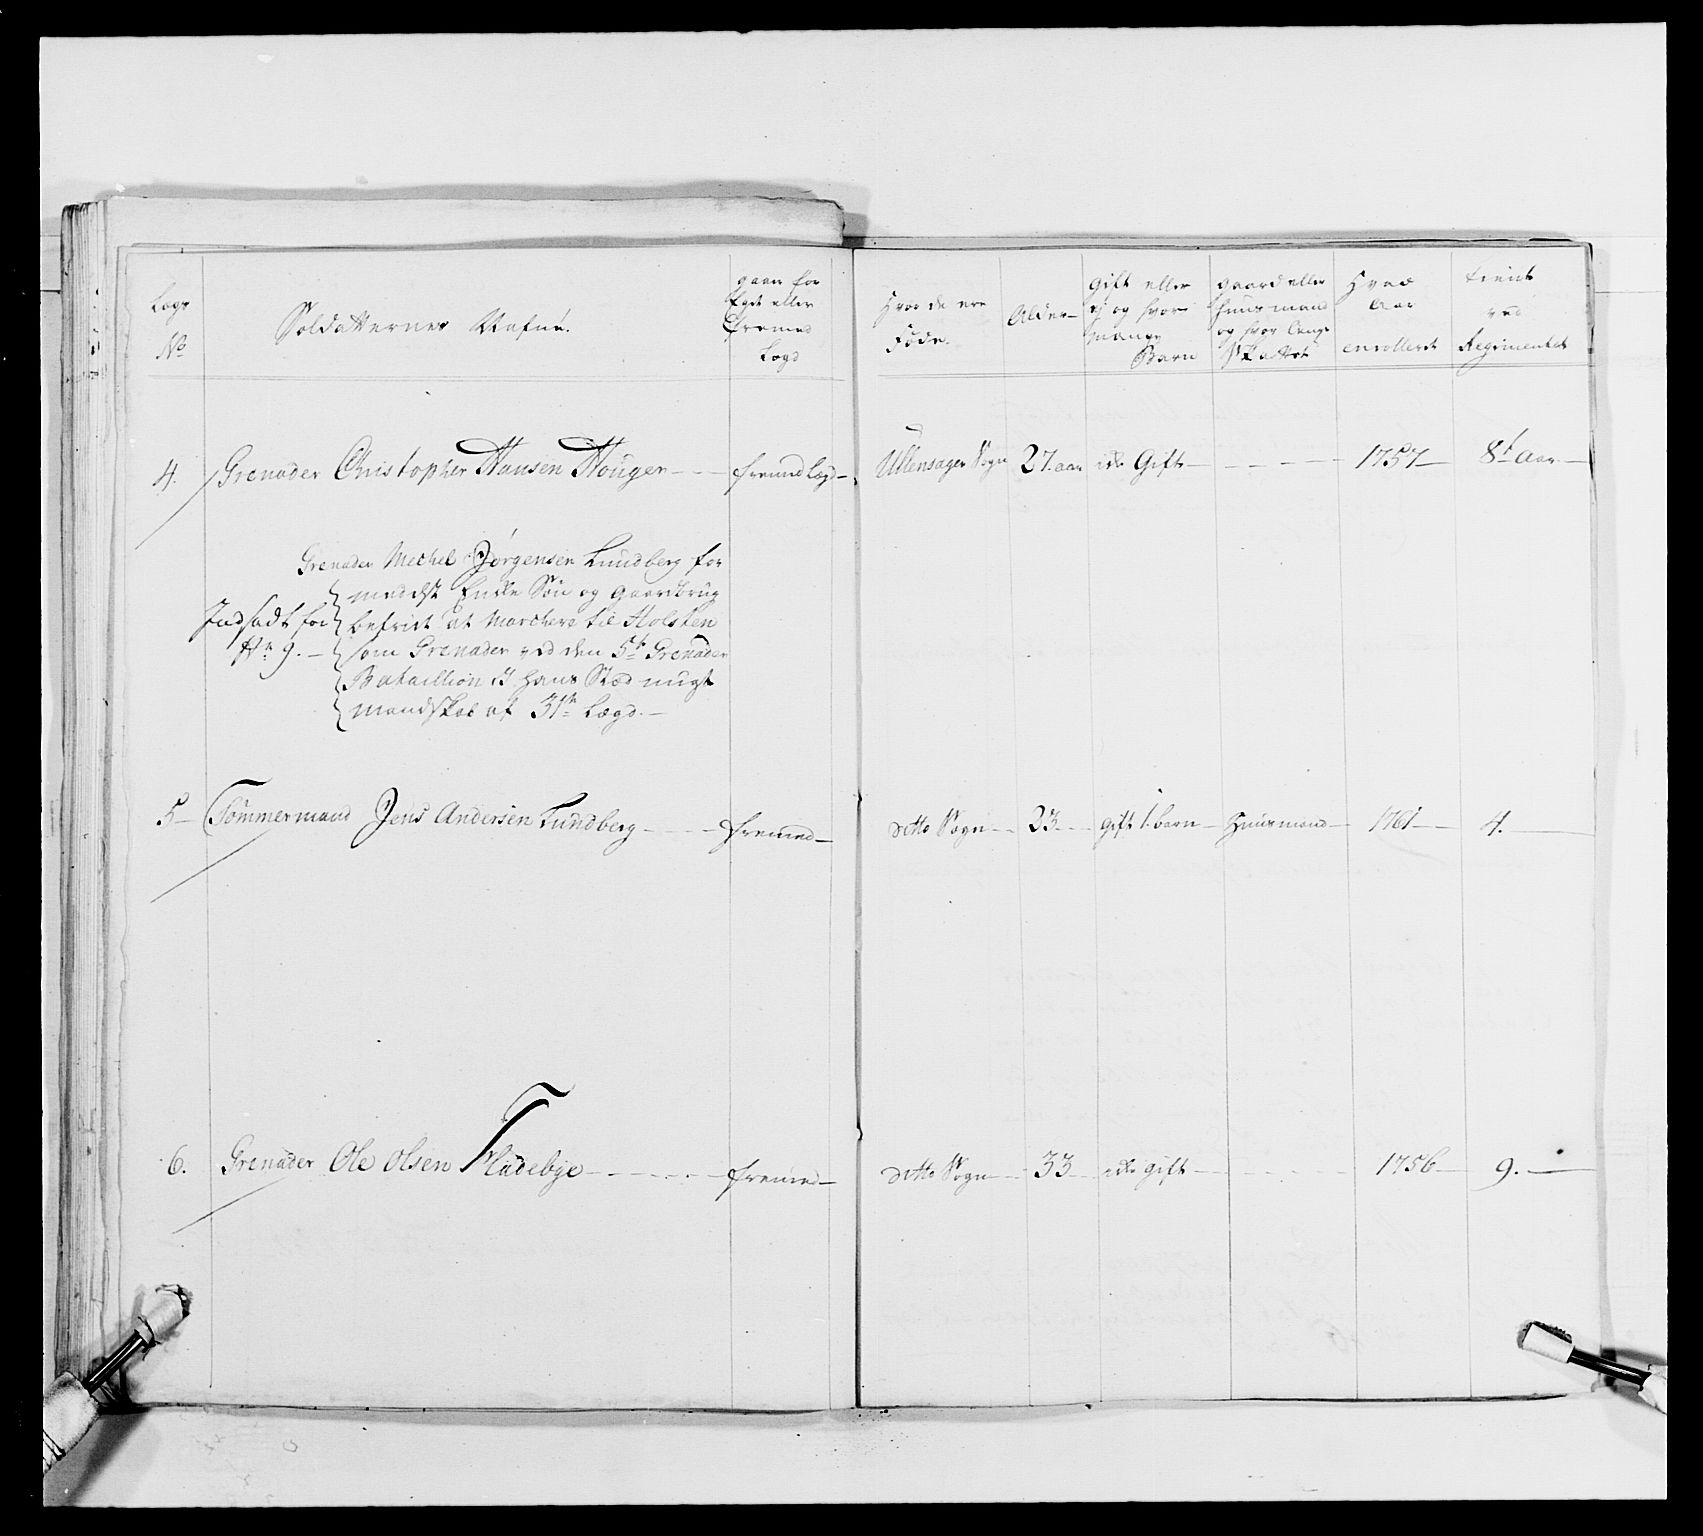 Lægs
No
Soldatternes Nafne.
gaaer for
Egdt eller
fremed
Lægd
Hvor de ere
Fødde.
Alder
Gift eller
ej og hvor
mange
Barn
gaard eller
huusmand
og hvor lenge
Skattet
Hvad
Aar
enrolleret
tient
ved
Regimentet
4. Grenader Christopher Hansen Houger fremd Lægd Ullensager Sogn 27. aar icke Gift 1757 8t aar
Grenader Mechel Jørgensen Lundberg for
meddelst Encke Søn og Gaardbrug
Indsadt for befriet at Marchere til Holsten
No 9. som Grenader ved den 5te Grenader
Bataillion I hans Sted
mandskab af 31te Lægd.
5 Tømmermand Jens Andersen Lundberg fremed ditto Sogn 23 gift 1. barn Huusmand 1761 4.
6. Grenader Ole Olsen Fladebye fremed ditto Sogn 33 icke gift 1756 9.